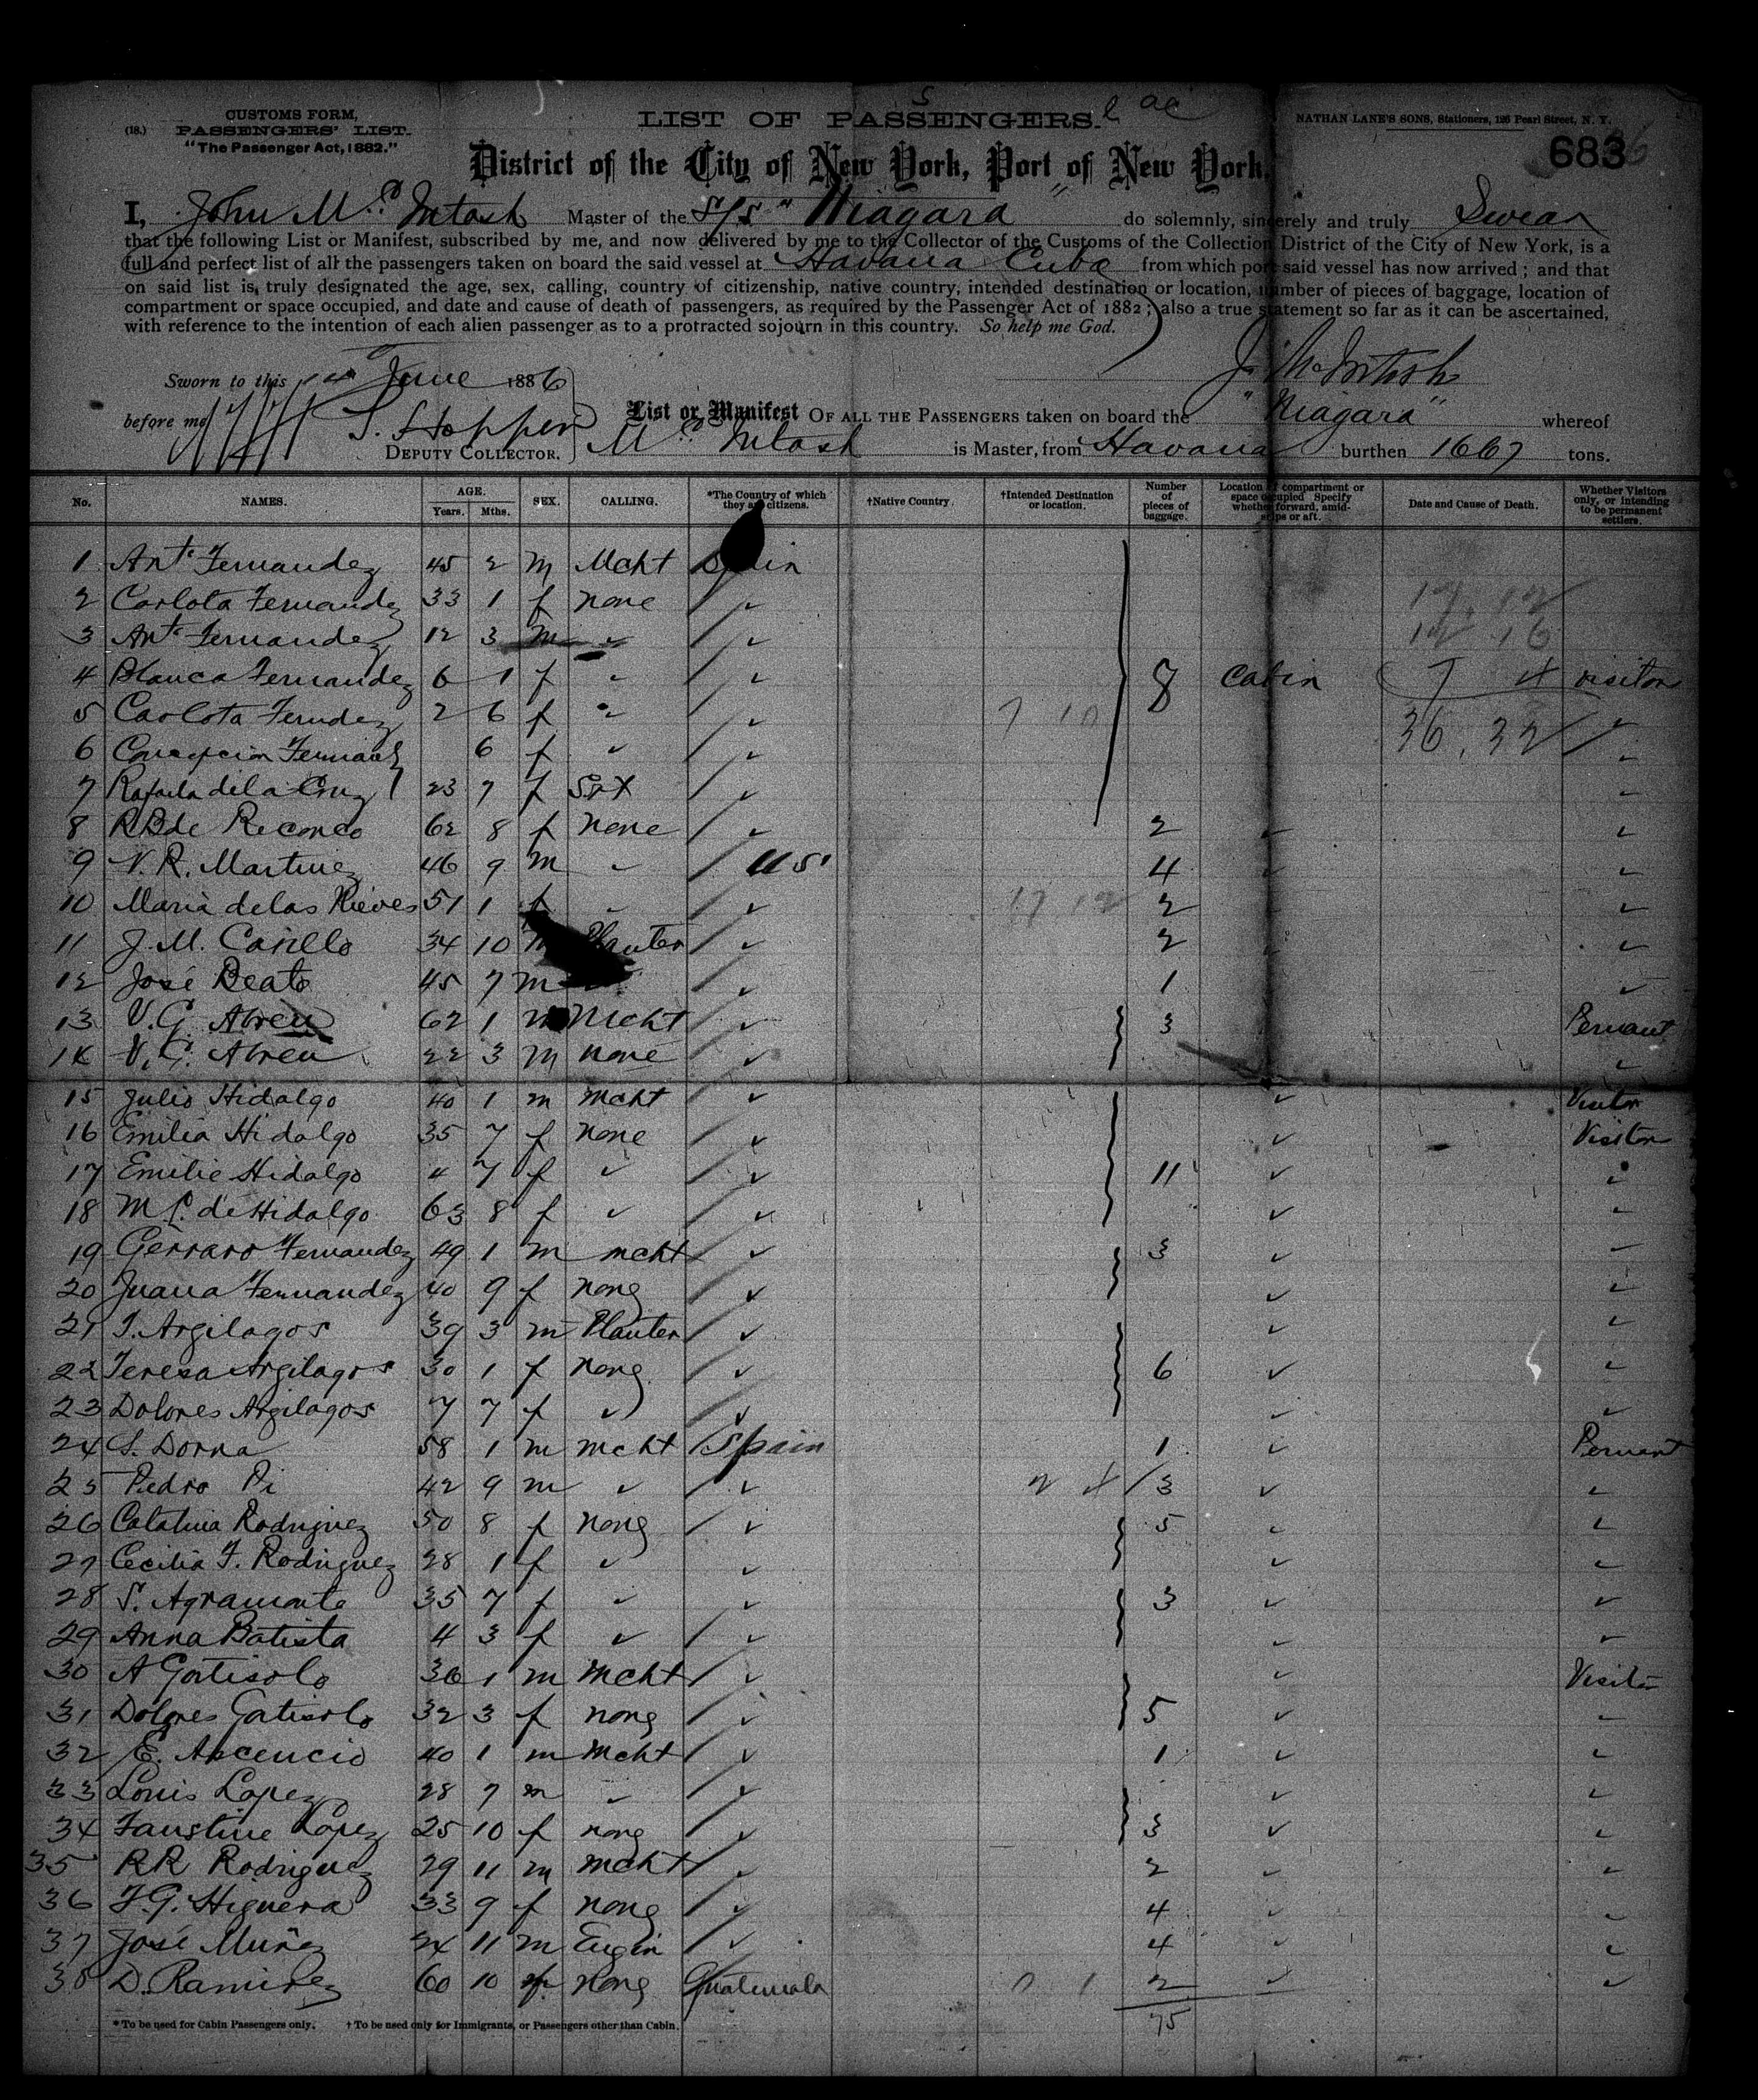 CUSTOMS FORM,
(18.) PASSENGERS' LIST.
"The Passenger Act, 1882."
LIST OF PASSENGERS.
NATHAN LANE'S SONS, Stationers, 126 Pearl Street, N. Y.
683
District of the City of New York, Port of New York.
I, John McIntosh Master of the S/S "Niagara" do solemnly, sincerely and truly Swear
that the following List or Manifest, subscribed by me, and now delivered by me to the Collector of the Customs of the Collection District of the City of New York, is a
full and perfect list of all the passengers taken on board the said vessel at Havana Cuba from which port said vessel has now arrived; and that
on said list is truly designated the age, sex, calling, country of citizenship, native country, intended destination or location, number of pieces of baggage, location of
compartment or space occupied, and date and cause of death of passengers, as required by the Passenger Act of 1882; also a true statement so far as it can be ascertained,
with reference to the intention of each alien passenger as to a protracted sojourn in this country. So help me God.
Sworn to this 14 June 1886
J. McIntosh
before me S. Hopper
DEPUTY COLLECTOR.
List or Manifest OF ALL THE PASSENGERS taken on board the "Niagara" whereof
McIntosh is Master, from Havana burthen 1667 tons.
No. NAMES. AGE. Years. Mths. SEX. CALLING. *The Country of which they are citizens. †Native Country †Intended Destination or location. Number of pieces of baggage. Location of compartment or space occupied Specify whether forward, amidships or aft. Date and Cause of Death. Whether Visitors only, or intending to be permanent settlers.
1 Anto Fernandez 45 2 m Mcht Spain
2 Carlota Fernandez 33 1 f none "
3 Anto Fernandez 12 3 m " "
4 Blanca Fernandez 6 1 f " " 8 Cabin visitor
5 Carlota Ferndez 2 6 f " " 7 10 36, 32 "
6 Concepcion Fernandz 6 f " " "
7 Rafaela dela Cruz 23 7 f Svt " "
8 R B de Reconco 62 8 f none " 2 " "
9 V. R. Martinez 46 9 m " U S. 4 " "
10 Maria de las Nieves 51 1 f " " 17 12 2 " "
11 J. M. Carillo 34 10 m Planter " 2 " "
12 José Beato 45 7 m " 1 "
13 V. G. Abreu 62 1 m Mcht " 3 Permant
14 V. G. Abreu 22 3 m none " "
15 Julio Hidalgo 40 1 m mcht " " Visitor
16 Emilia Hidalgo 35 7 f none " " Visitor
17 Emilie Hidalgo 4 7 f " " 11 " "
18 M P. de Hidalgo 63 8 f " " " "
19 Gerraro Fernandez 49 1 m mcht " 3 " "
20 Juana Fernandez 40 9 f none " " "
21 T. Argilagos 39 3 m Planter " " "
22 Teresa Argilagos 30 1 f none " 6 " "
23 Dolores Argilagos 7 7 f " " " "
24 S. Dorna 58 1 m mcht Spain 1 " Permant
25 Pedro Pi 42 9 m " " 2 4 3 " "
26 Catalina Rodriguez 50 8 f none " 5 " "
27 Cecilia F. Rodriguez 28 1 f " " " "
28 S. Agramonte 35 7 f " " 3 " "
29 Anna Batista 4 3 f " " " "
30 A Gatisolo 36 1 m Mcht " " Visitor
31 Dolores Gatisolo 32 3 f none " 5 " "
32 E. Ascencio 40 1 m Mcht " 1 " "
33 Louis Lopez 28 7 m " " " "
34 Faustine Lopez 25 10 f none " 3 " "
35 RR Rodriguez 29 11 m mcht " 2 " "
36 F. G. Higuera 33 9 f none " 4 " "
37 José Muñez 24 11 m Engin " 4 " "
38 D. Ramirez 60 10 f none Guatemala 1 2 " "
75
*To be used for Cabin Passengers only. †To be used only for Immigrants, or Passengers other than Cabin.